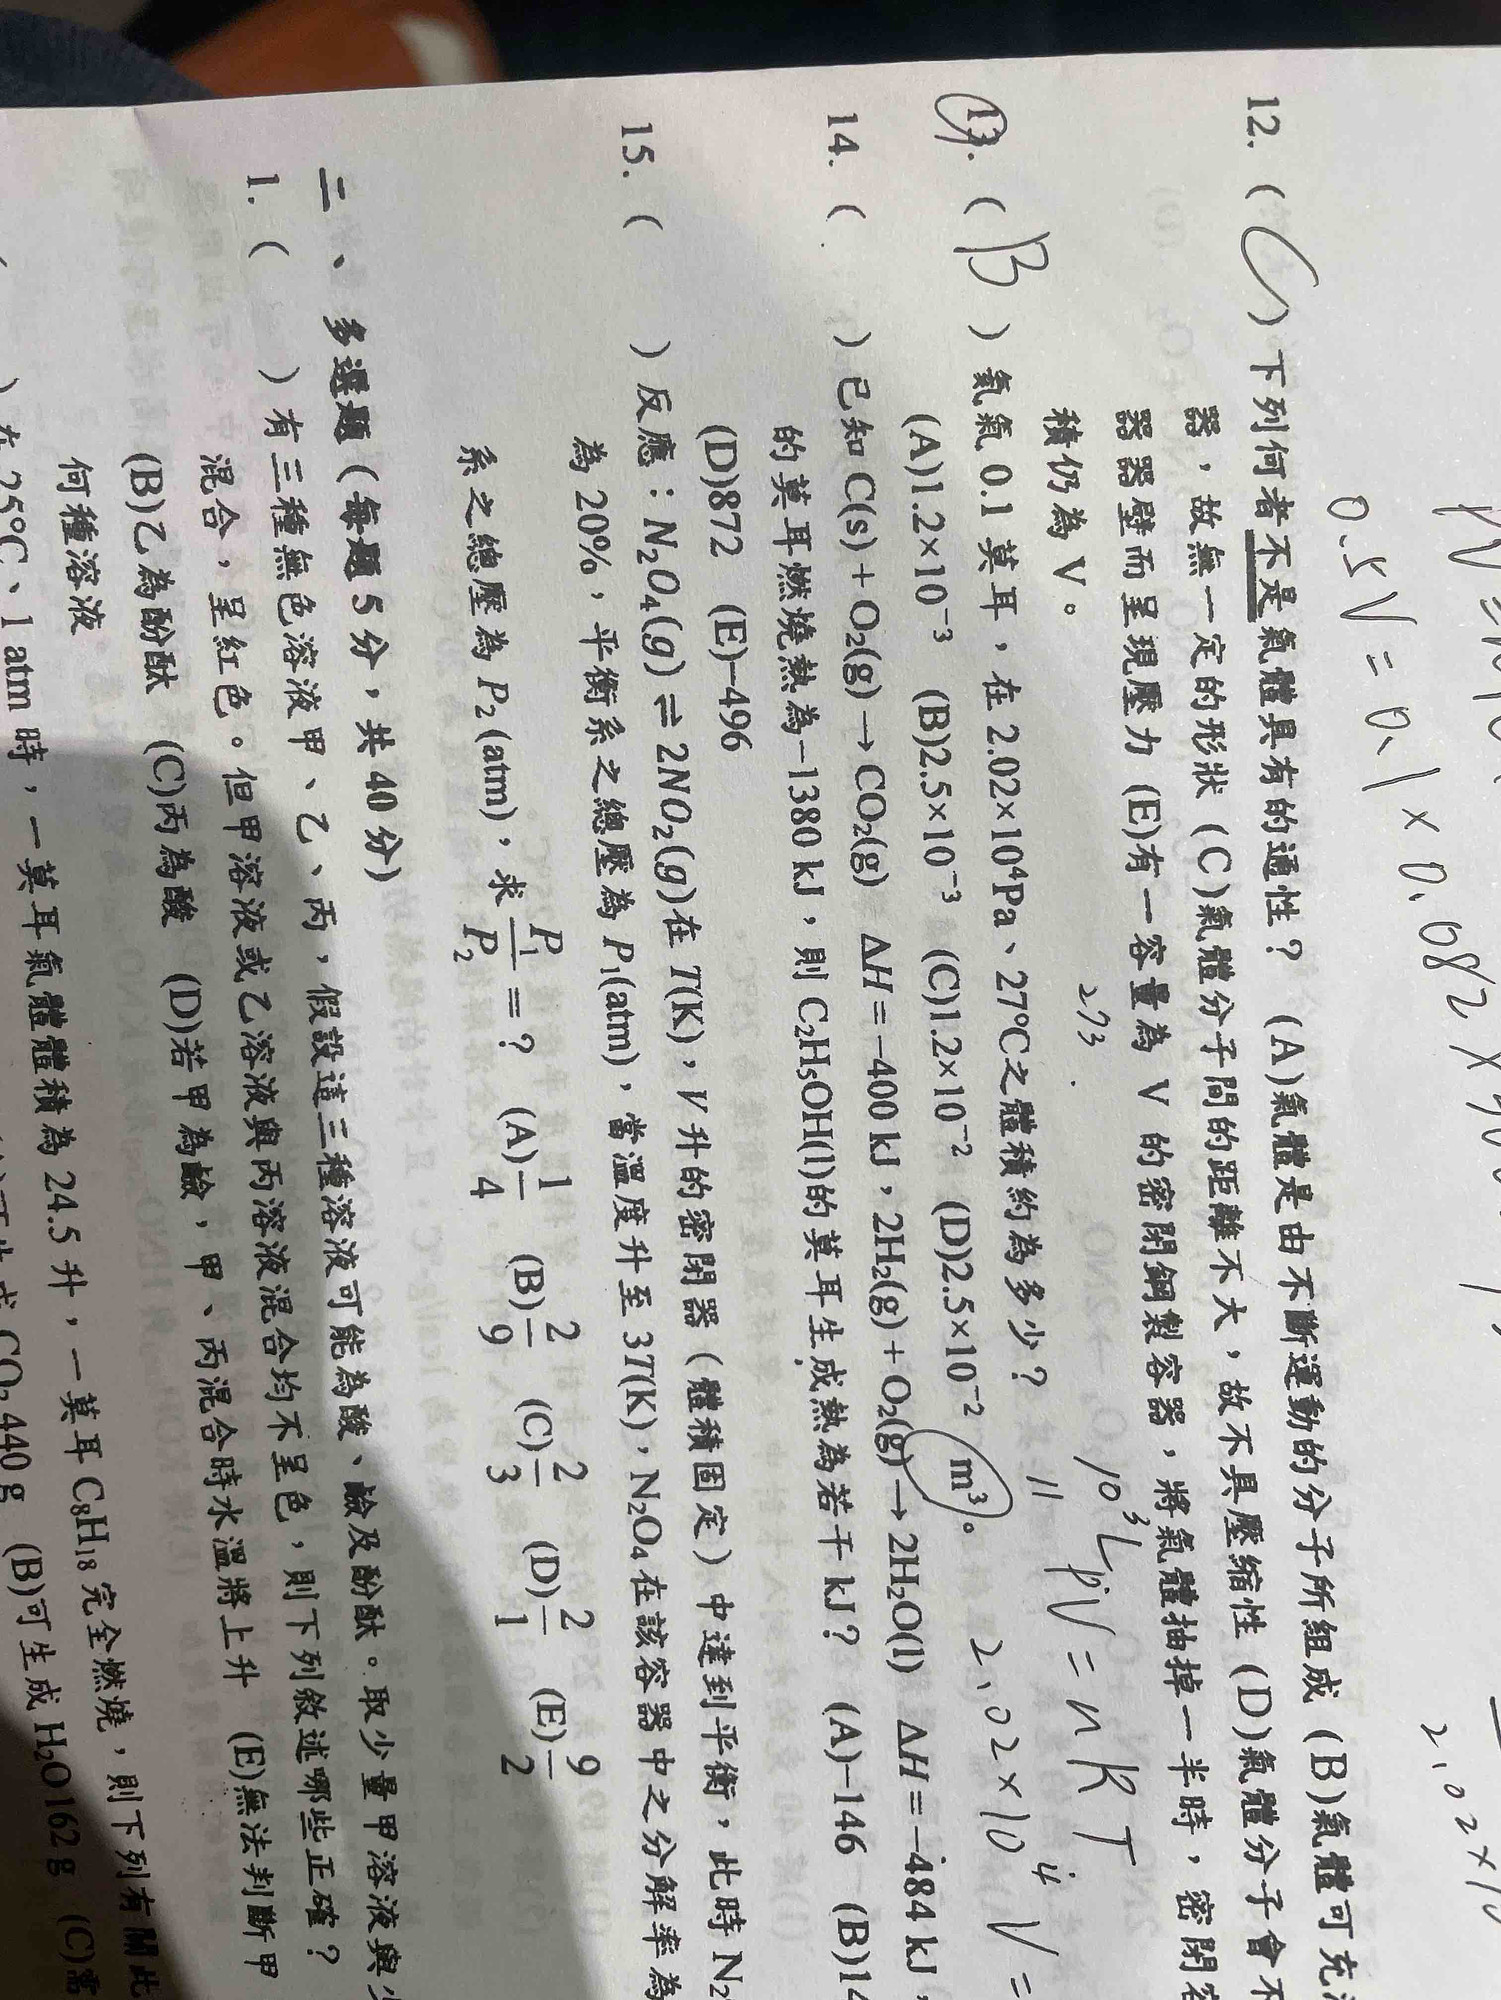 0.5V=0.1×0.082×
2.02×10
12. ( C ) 下列何者不是氣體具有的通性？ (A)氣體是由不斷運動的分子所組成 (B)氣體可充
器，故無一定的形狀 (C)氣體分子間的距離不大，故不具壓縮性 (D)氣體分子會不
器器壁而呈現壓力 (E)有一容量為 V 的密閉鋼製容器，將氣體抽掉一半時，密閉容
積仍為 V。
273
10³L
PV=nRT
13. ( B ) 氦氣 0.1 莫耳，在 2.02×10⁴Pa、27℃之體積約為多少？
11
2.02×10⁴V=
(A)1.2×10⁻³ (B)2.5×10⁻³ (C)1.2×10⁻² (D)2.5×10⁻² m³。
14. ( ) 已知 C(s)+O₂(g)→CO₂(g) ΔH=−400 kJ，2H₂(g)+O₂(g)→2H₂O(l) ΔH=−484 kJ，
的莫耳燃燒熱為−1380 kJ，則 C₂H₅OH(l)的莫耳生成熱為若干 kJ？ (A)−146 (B)14
(D)872 (E)−496
15. ( ) 反應：N₂O₄(g)⇌2NO₂(g)在 T(K)，V 升的密閉器（體積固定）中達到平衡，此時 N₂
為 20%，平衡系之總壓為 P₁(atm)，當溫度升至 3T(K)，N₂O₄在該容器中之分解率為
系之總壓為 P₂(atm)，求 P₁/P₂=？ (A)1/4 (B)2/9 (C)2/3 (D)2/1 (E)9/2
二、多選題（每題 5 分，共 40 分）
1. ( ) 有三種無色溶液甲、乙、丙，假設這三種溶液可能為酸、鹼及酚酞。取少量甲溶液與
混合，呈紅色。但甲溶液或乙溶液與丙溶液混合均不呈色，則下列敘述哪些正確？
(B)乙為酚酞 (C)丙為酸 (D)若甲為鹼，甲、丙混合時水溫將上升 (E)無法判斷甲
何種溶液
) 在 25℃、1 atm 時，一莫耳氣體體積為 24.5 升，一莫耳 C₈H₁₈ 完全燃燒，則下列有關此
CO₂ 440 g (B)可生成 H₂O 162 g (C)需